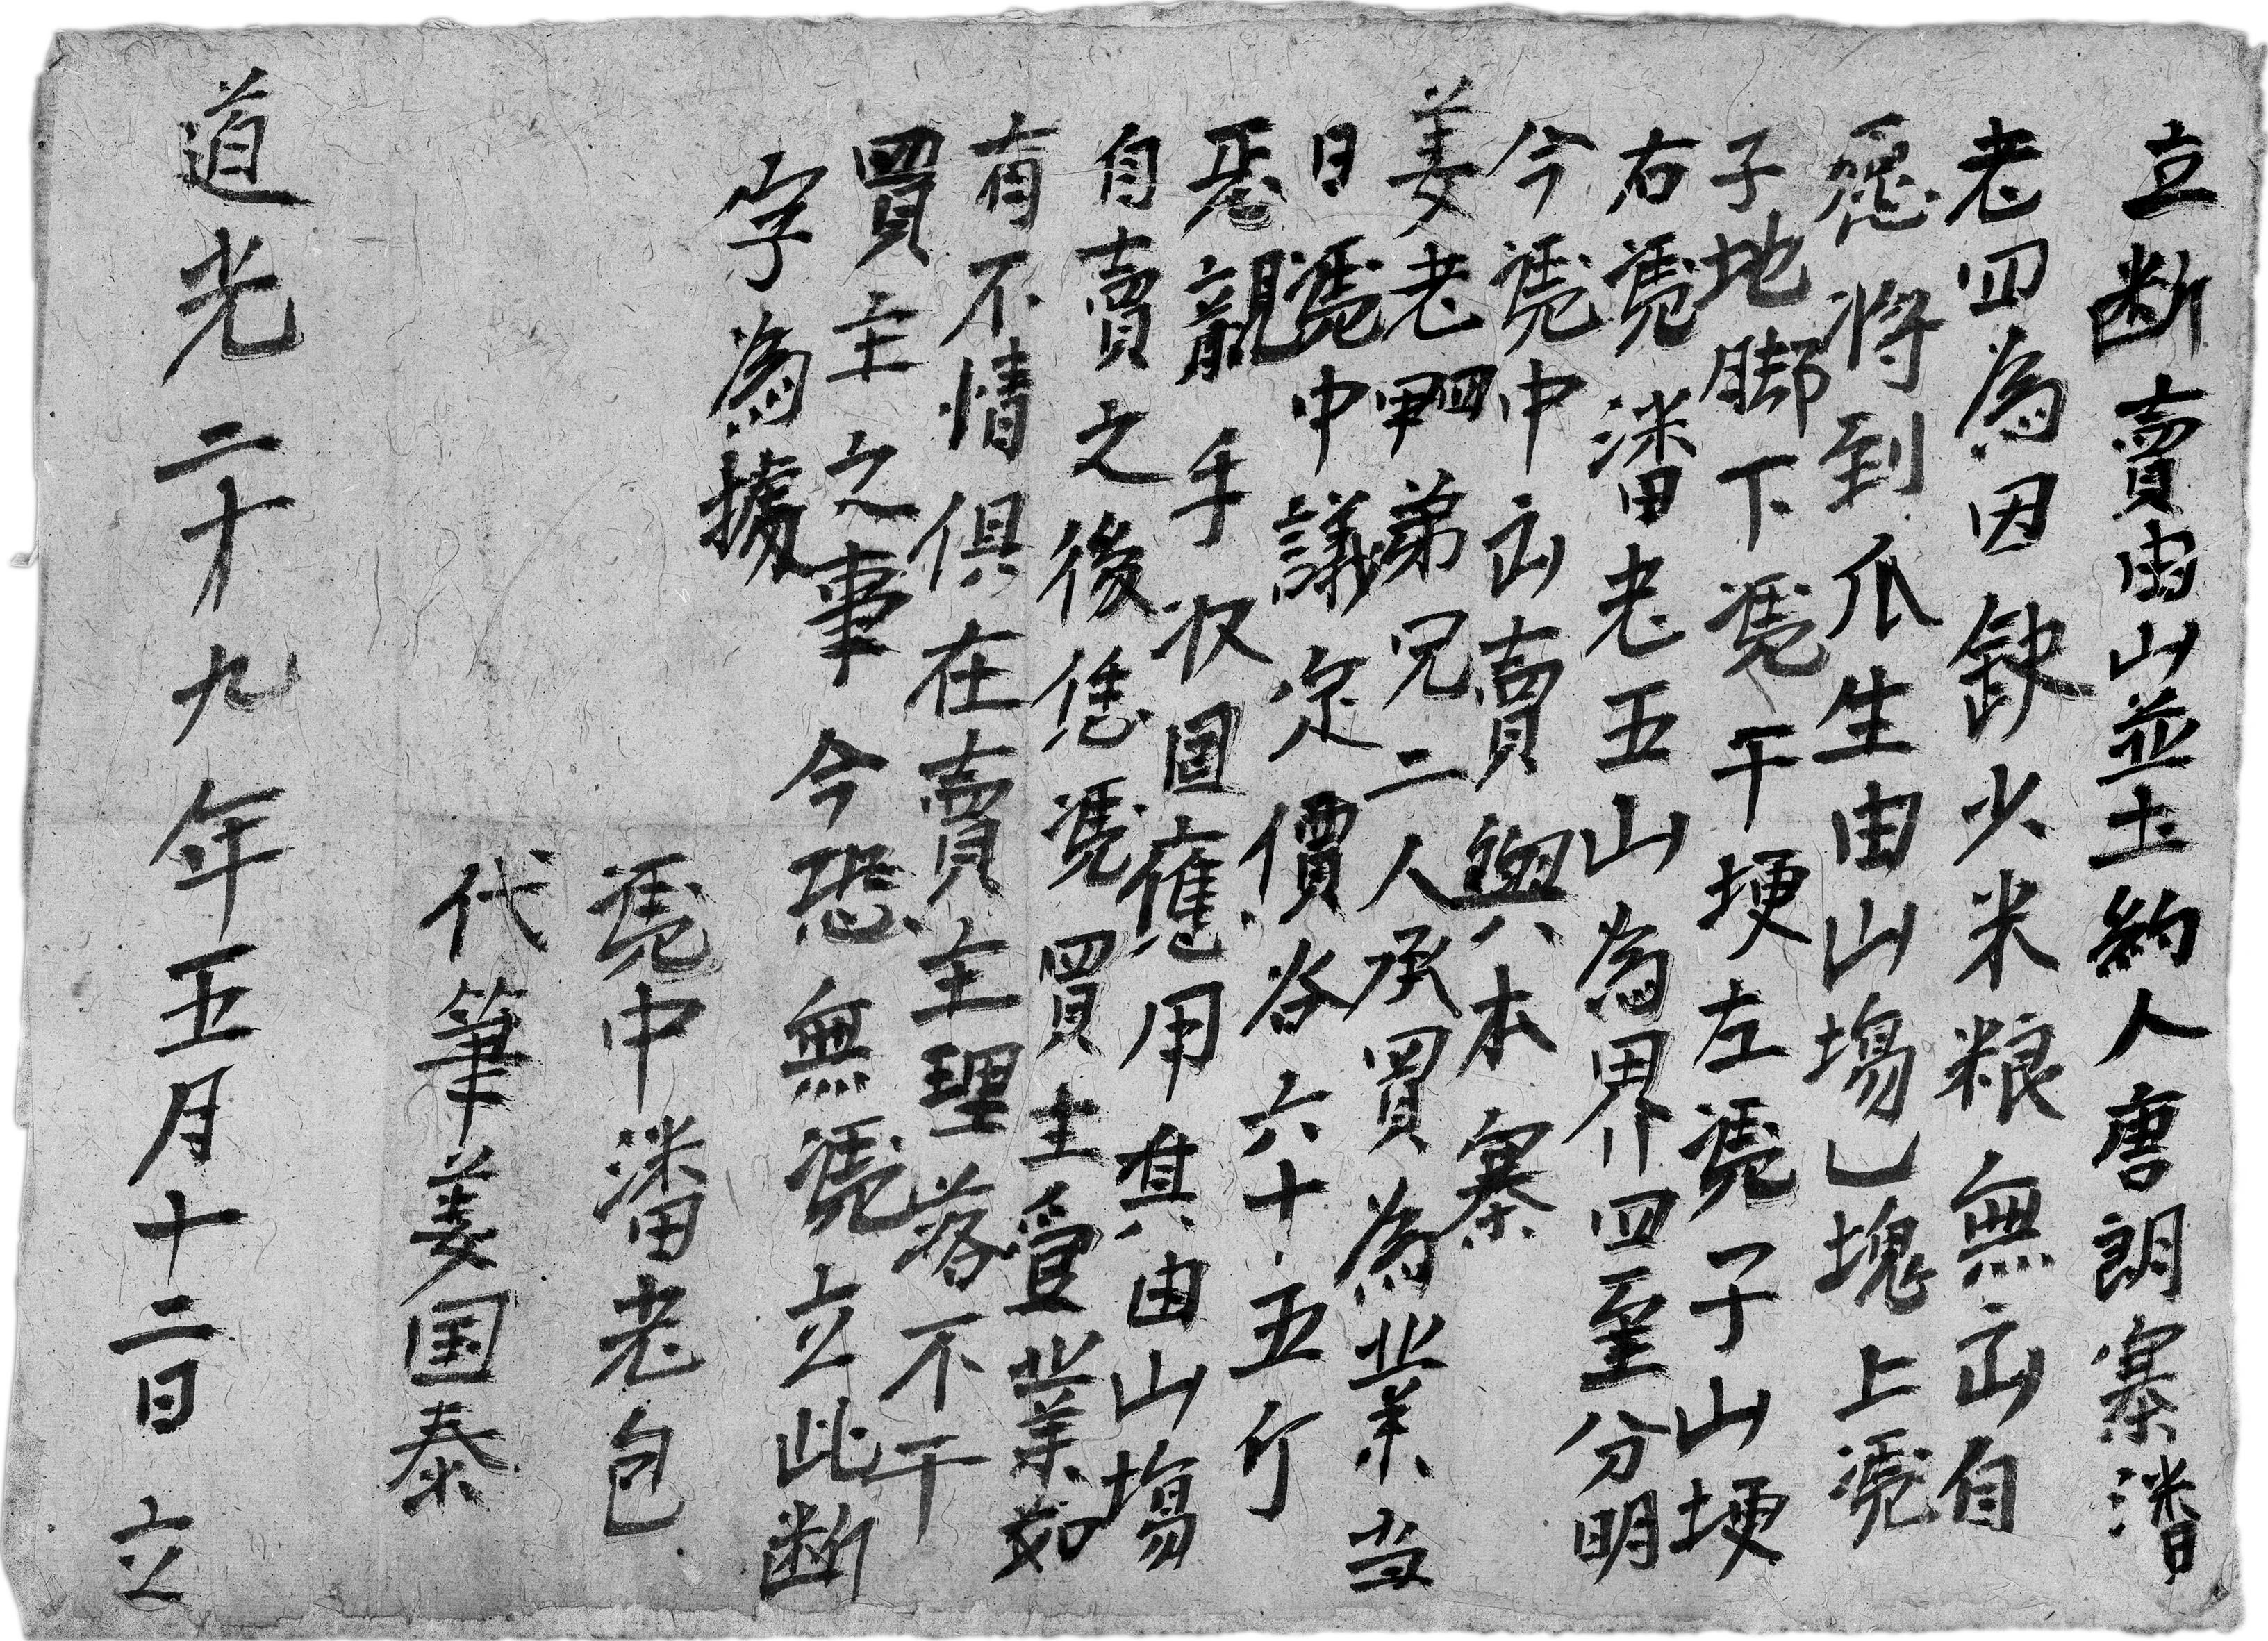 立断賣由山並土約人唐朗寨潘
老四為因缺少米粮無出自
愿將到爪生由山塲乚塊上凴
子地脚下凴干埂左凴子山埂
右凴潘老五山為界四至分明
今凴中出賣與本寨
姜老四弟兄二人承買為業当
日凴中議定價谷六十五斤
親手收囬應用其由山塲
自賣之後恁凴買主管業如
有不情俱在賣主理落不干
買主之事今恐無凴立此断
字為據
凴中潘老包
代筆姜国泰
道光二十九年五月十二日立